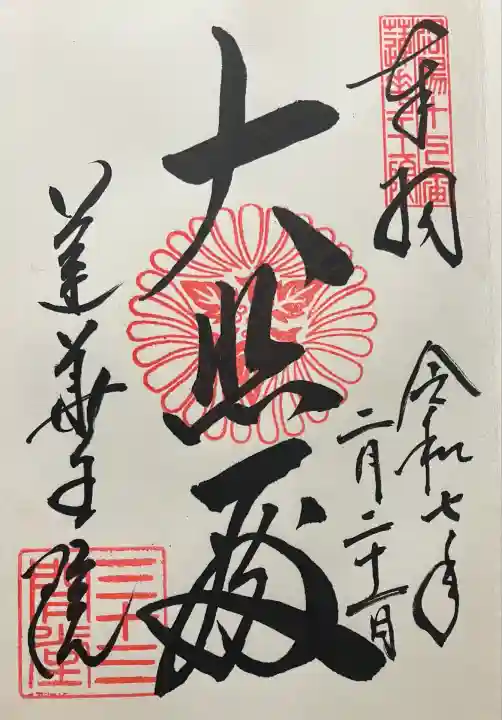 奉拝
令和七年
二月二十一日
大悲殿
蓮華王院
三十三
間堂